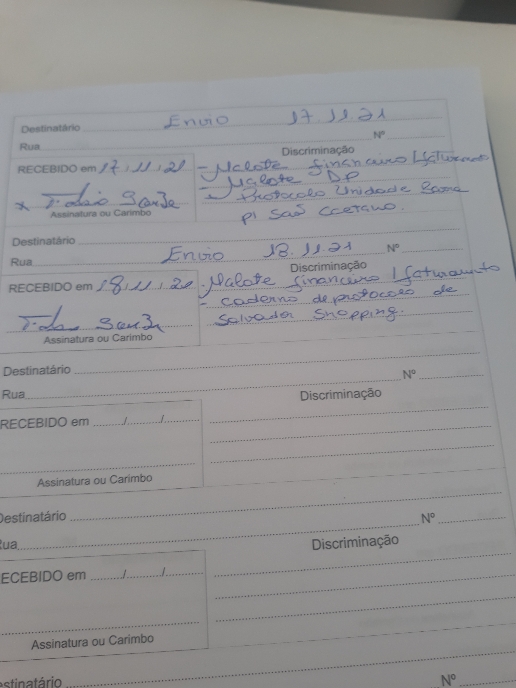 Destinatário Envio 17.11.21
Rua Nº
RECEBIDO em 17.11.21 Discriminação
- Malote financeiro / faturamento
- Malote DP
x
- Protocolo Unidade
Assinatura ou Carimbo
p/ São Caetano.
Destinatário Envio 18.11.21
Rua Nº
RECEBIDO em 18.11.21 Discriminação
- Malote financeiro / faturamento
- caderno de protocolo de
Salvador Shopping.
Assinatura ou Carimbo
Destinatário
Rua Nº
RECEBIDO em / / Discriminação
Assinatura ou Carimbo
Destinatário
Rua Nº
RECEBIDO em / / Discriminação
Assinatura ou Carimbo
Destinatário
Nº